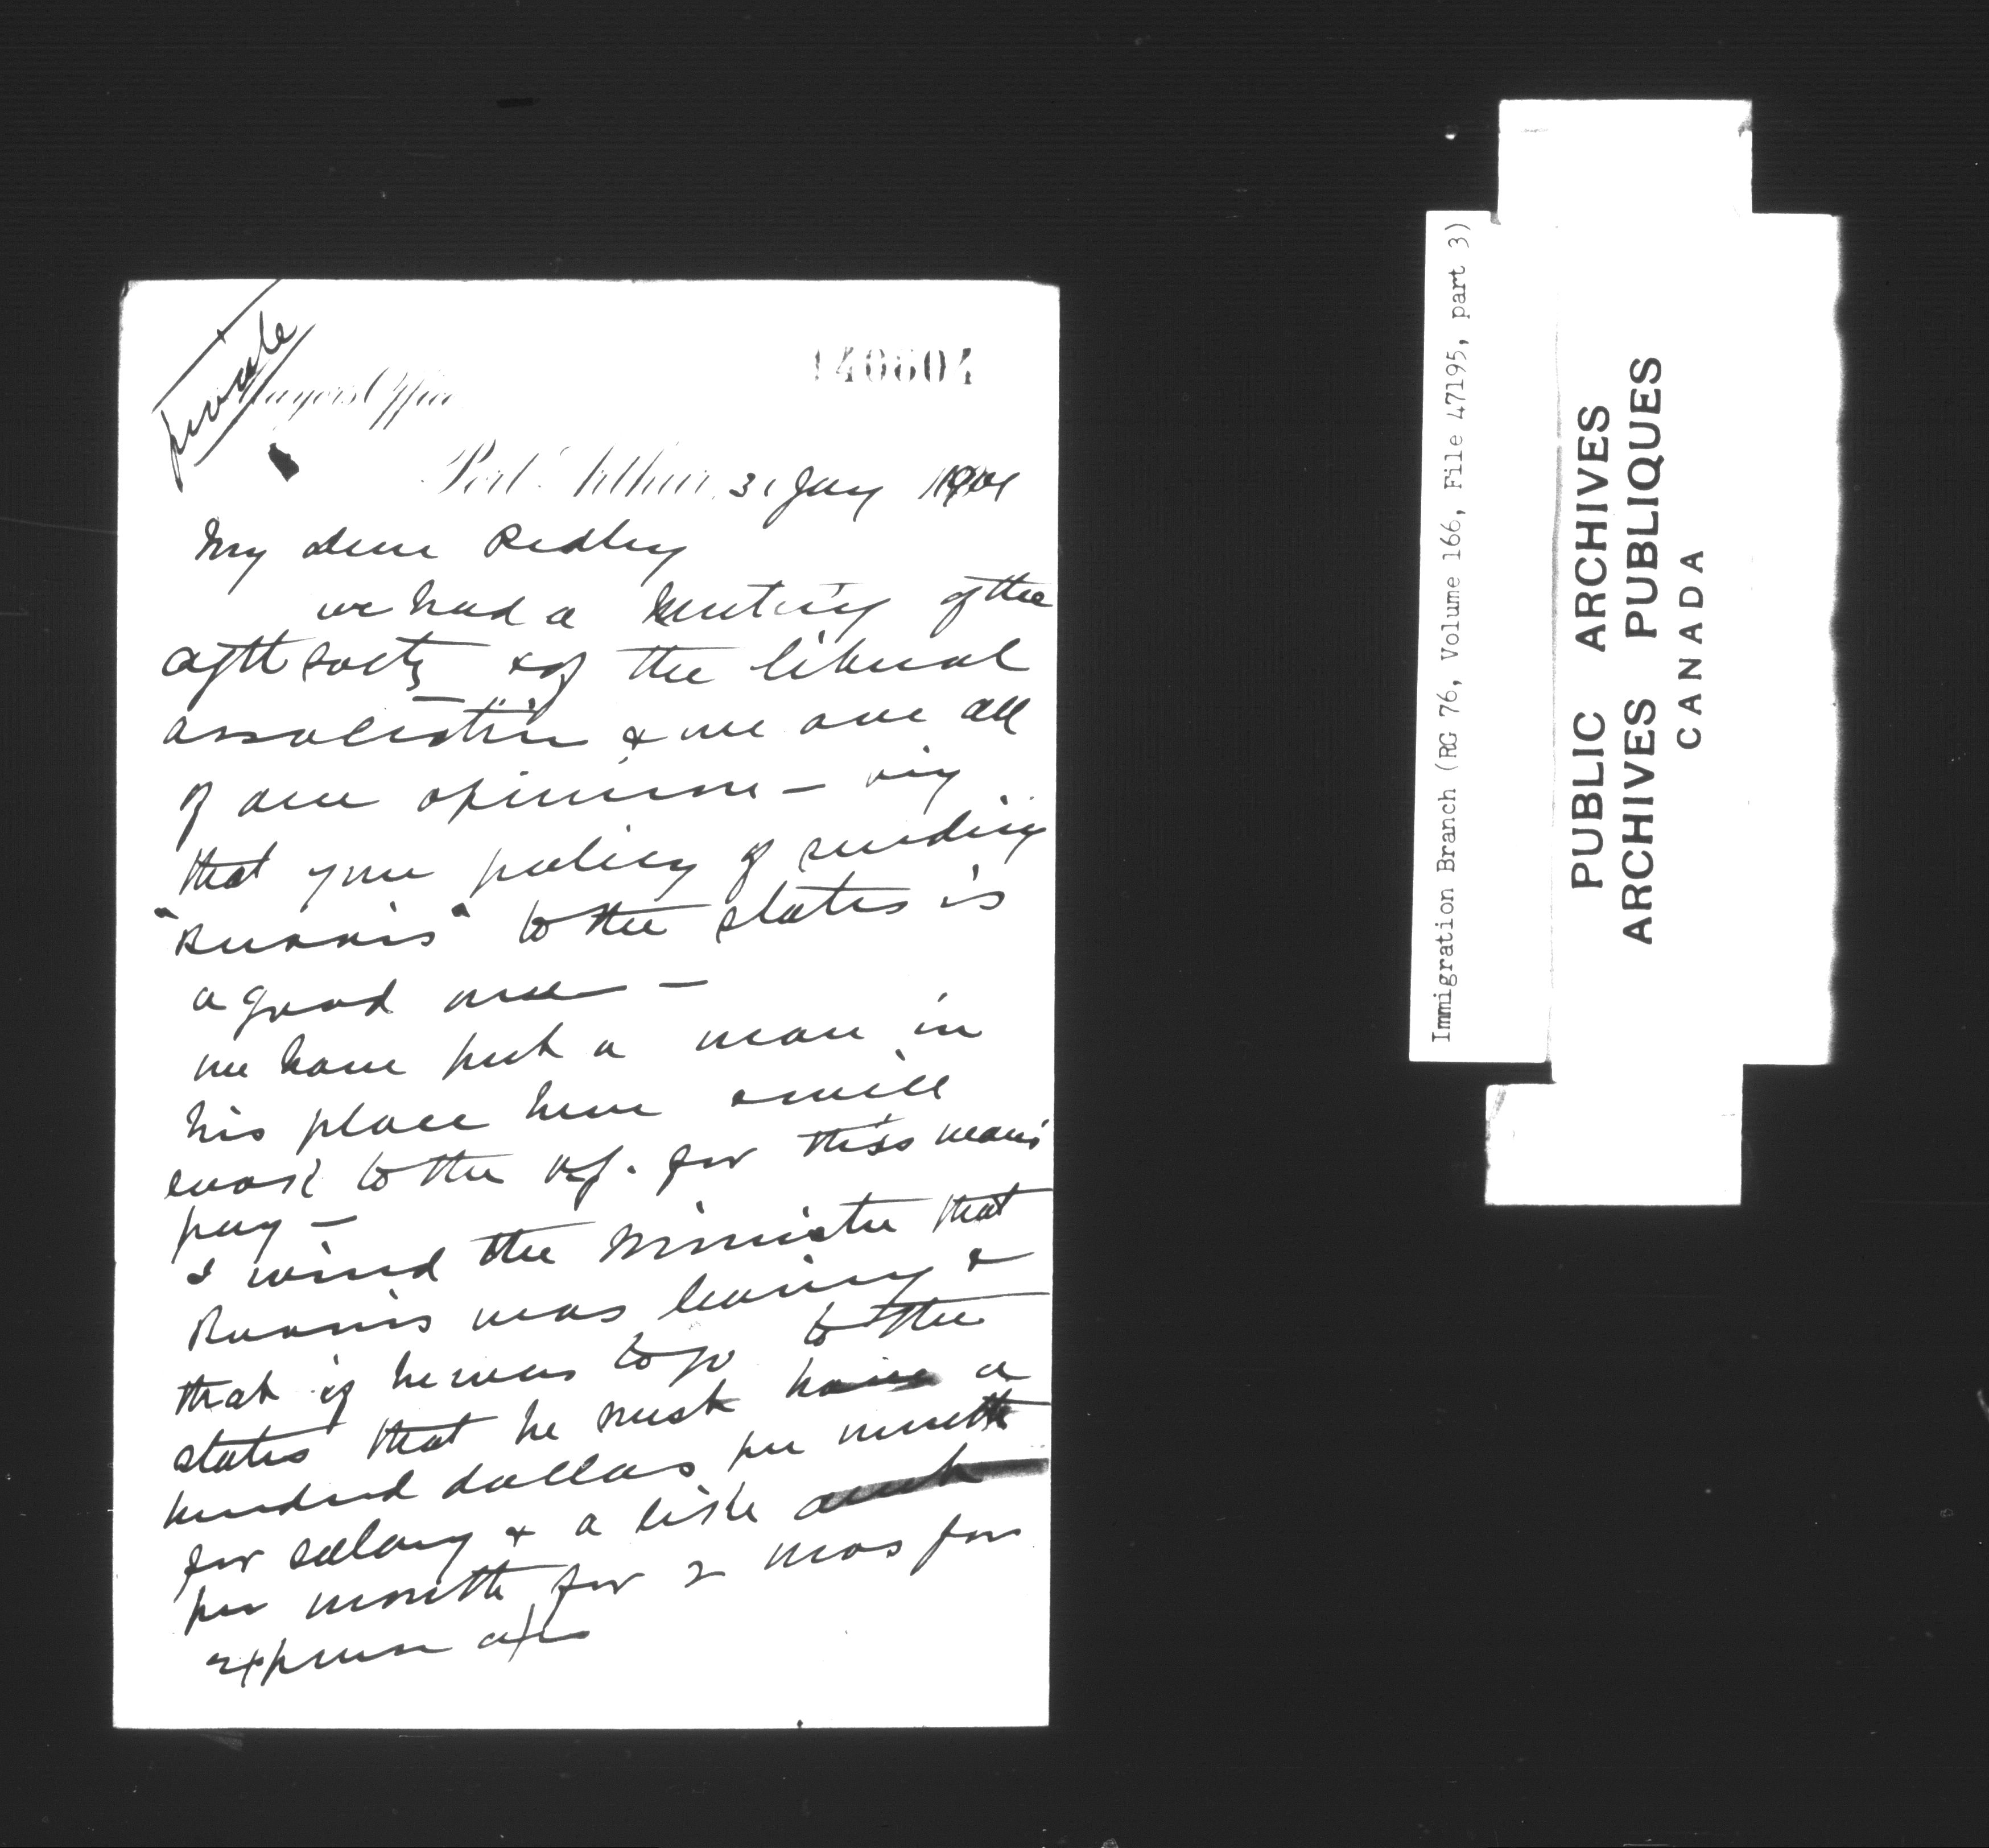 private
Mayors Office
140604
Port Arthur, 31 Jany 1901
My dear Redley
we had a Meeting of the
aft socty & of the liberal
association & we are all
of one opinion — viz
that your policy of sending
"Burris" to the states is
a good one —
we have put a man in
his place here & will
look to the for this mans
pay —
I wired the Minister that
Burris was leaving &
that if he was to go to the
states that he must have a
hundred dollars per month
for salary & a like
per month for 2 mos for
expense
Immigration Branch (RG 76, Volume 166, File 47195, part 3)
PUBLIC ARCHIVES
ARCHIVES PUBLIQUES
CANADA